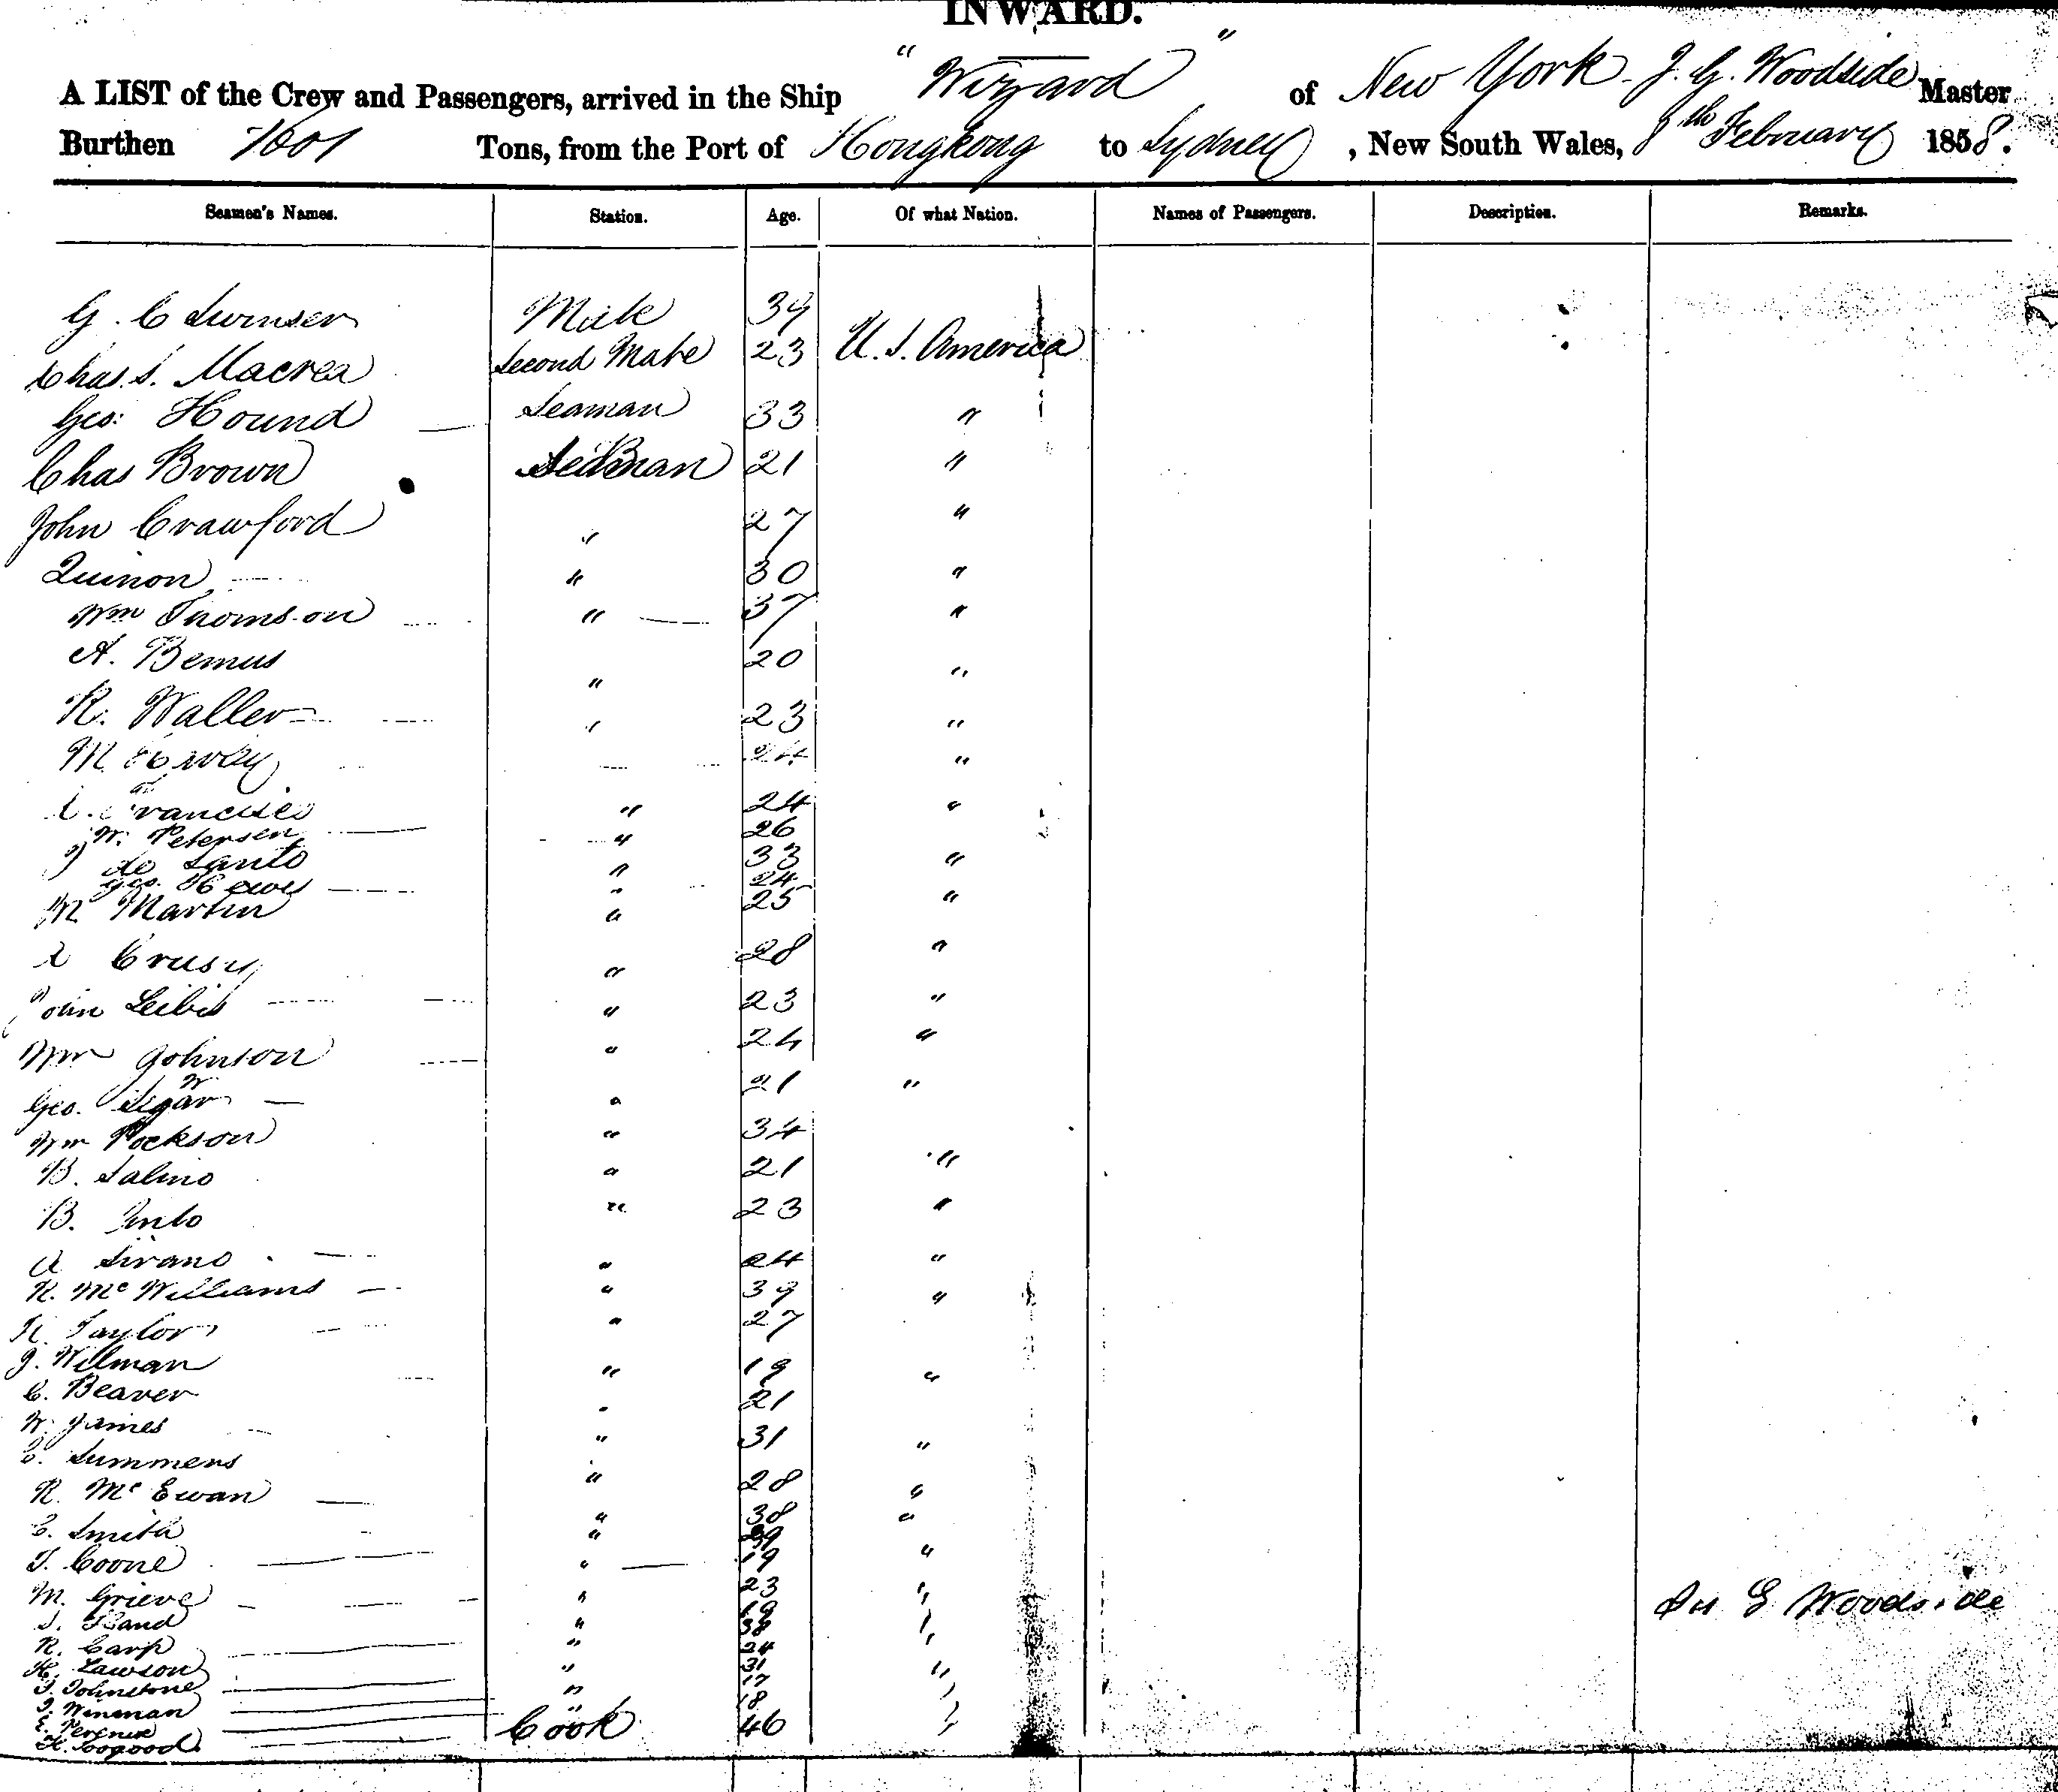 INWARD.
A LIST of the Crew and Passengers, arrived in the Ship "Wizzard" of New York J. G. Woodside Master
Burthen 1601 Tons, from the Port of Hongkong to Sydney, New South Wales, 8th February 1858.
Seamen's Names. Station. Age. Of what Nation. Names of Passengers. Description. Remarks.
G. C Mate 39
Chas. S. Macrea Second Mate 23 U. S. America
Geo: Hound Seaman 33 "
Chas Brown Seaman 21 "
John Crawford " 27 "
Quinon " 30 "
Wm Thomson " 37 "
A. Bemus " 20 "
R. Waller " 23 "
M 24 "
Francisco " 24 "
W. Petersen " 26
de Santo " 33 "
Geo. " 24
M Martin " 25 "
Crusy " 28 "
John " 23 "
Wm Johnson " 24 "
Geo. " 21 "
Wm Pockson " 34
B. Salino " 21 "
B. " 23 "
A " 24 "
R. McWilliams " 39 "
Taylor " 27
J. Wilman " 19 "
C. Beaver " 21
W. James " 31 "
C. Summens " 28 "
R. McEwan " 38 "
C. Smith " 39
T. Coone " 19 "
M. Grieve " 23 "
S. Hand " 19 "
R. Carp " 38 "
H. Lawson " 24 "
J. Johnstone " 31 "
J. Winman " 17 "
E. " 18 "
H. Cook 46 "
G Woodside